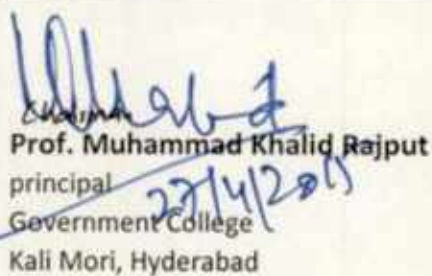 Chairman
Prof. Muhammad Khalid Rajput
principal
27/4/2015
Government College
Kali Mori, Hyderabad